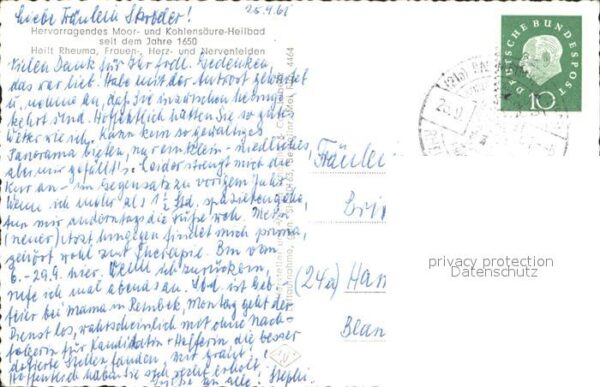 25.9.61
Liebe Fräulein Skröder!
Hervorragendes Moor- und Kohlensäure-Heilbad
seit dem Jahre 1650
Heilt Rheuma, Frauen-, Herz- und Nervenleiden
Vielen Dank für Ihr frdl. Gedenken,
das war lieb. Habe mit der Antwort gewartet
u. nehme an, daß Sie inzwischen heimge-
kehrt sind. Hoffentlich hatten Sie so gutes
Wetter wie ich. Kann kein so gewaltiges
Panorama bieten, nur ein klein-niedliches,
aber mir gefällt's. Leider strengt mich die
Kur an - im Gegensatz zu vorigem Jahr.
Wenn ich mehr als 1½ Std. spazierengehe,
tun mir anderntags die Füße weh. Mei-
neuer Arzt hingegen findet mich prima,
gehört wohl zur Therapie. Bin vom
6.-29.9. hier. Wenn ich zurückkam,
rufe ich mal abends an. Sbd. ist Geb.
feier bei Mama in Reinbek, Montag geht der
Dienst los, wahrscheinlich mit ohne Nach-
folgerin für Kandidatin + Helferin, die besser
dotierte Stellen fanden. Mir graut!
Hoffentlich haben Sie sich recht erholt,
an alle. Stephi.
4464
DEUTSCHE BUNDESPOST
10
Fräulei
Bri
(24a) Ham
Blan
privacy protection
Datenschutz